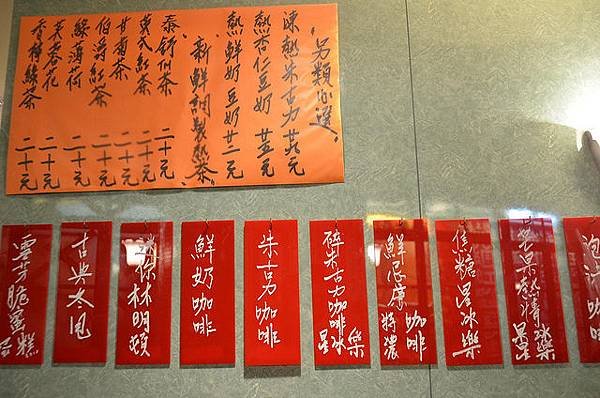 另類小選
凍熱朱古力 廿元
熱杏仁豆奶 廿五元
熱鮮奶豆奶 廿二元
新鮮調製熱茶
泰舒仙茶 二十元
英式紅茶 二十元
甘菊茶 二十元
伯爵紅茶 二十元
綠薄荷 二十元
芙蓉花 二十元
香檸綠茶 二十元
泡沫咖啡
芒果熱情星冰樂
焦糖星冰樂
鮮忌廉特濃咖啡
碎朱古力咖啡星冰樂
朱古力咖啡
鮮奶咖啡
林明頓
古典太甩
雲芽脆蜜蛋糕